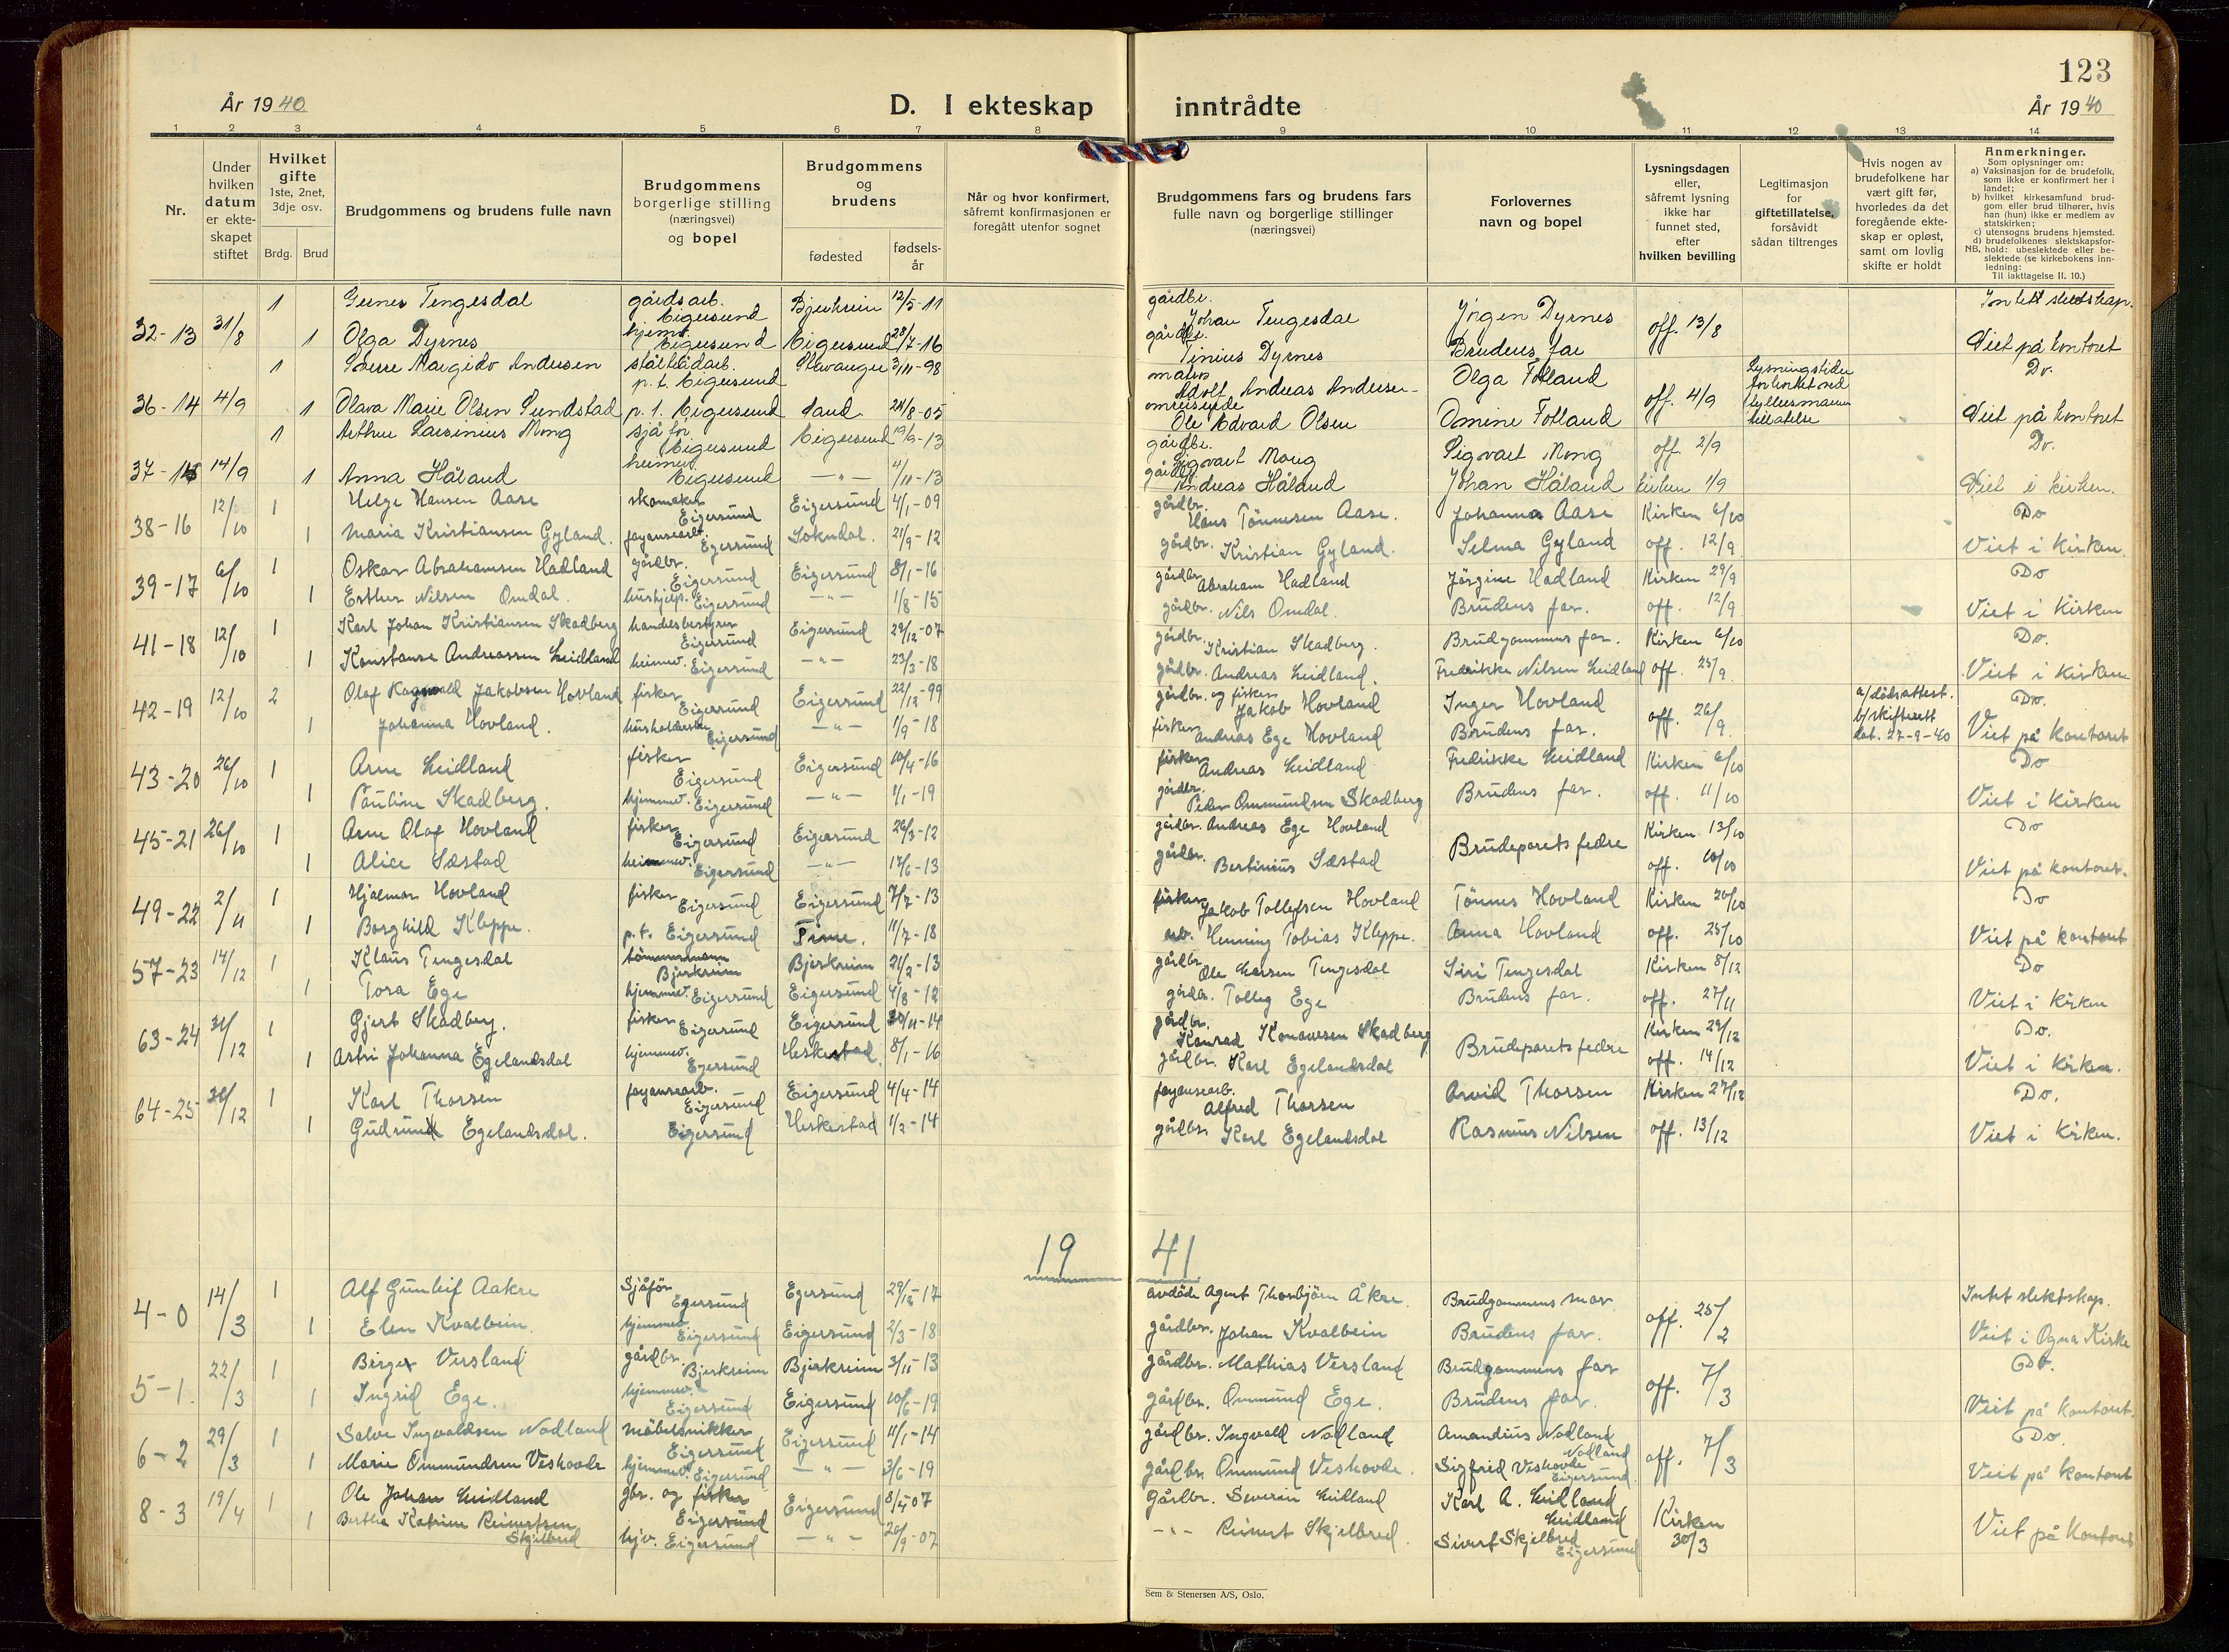 123
År 1940
D. I ekteskap inntrådte
År 1940
1 2 3 4 5 6 7 8 9 10 11 12 13 14
Nr.
Under hvilken datum er ekte-skapet stiftet
Hvilket gifte 1ste, 2net, 3dje osv.
Brdg. Brud
Brudgommens og brudens fulle navn
Brudgommens borgerlige stilling (næringsvei) og bopel
Brudgommens og brudens
fødested
fødsels-år
Når og hvor konfirmert, såfremt konfirmasjonen er foregått utenfor sognet
Brudgommens fars og brudens fars fulle navn og borgerlige stillinger (næringsvei)
Forlovernes navn og bopel
Lysningsdagen eller, såfremt lysning ikke har funnet sted, efter hvilken bevilling
Legitimasjon for giftetillatelse, forsåvidt sådan tiltrenges
Hvis nogen av brudefolkene har vært gift før, hvorledes da det foregående ekte-skap er opløst, samt om lovlig skifte er holdt
Anmerkninger.
Som oplysninger om:
a) Vaksinasjon for de brudefolk, som ikke er konfirmert her i landet;
b) hvilket kirkesamfund brud-gom eller brud tilhører, hvis han (hun) ikke er medlem av statskirken;
c) utensogns brudens hjemsted.
d) brudefolkenes slektskapsfor-hold: ubeslektede eller be-slektede (se kirkebokens inn-ledning:
NB.
Til iakttagelse II. 10.)
1 Tengesdal gårdsarb. Eigersund Bjerkreim 12/5-11 gårdbr. Johan Tengesdal Jörgen Dyrnes
32-13 31/8 1 Olga Dyrnes Eigersund Eigersund 28/7-16 gårdbr. Tinius Dyrnes Brudens far off. 13/8 Viet på kontoret
1 Margido Andersen p.t. Eigersund Stavanger 3/11-98 Adolf Andreas Andersen Olga Folland Do.
36-14 4/9 1 Olava Marie Olsen Sundstad p.t. Eigersund Sand 24/8-05 omreisende Ole Edvard Olsen Omine Folland off. 4/9 Viet på kontoret
1 Arthur Mong sjåför Eigersund Eigersund 19/9-13 gårdbr. Sigvart Mong Sigvart Mong off 2/9 Do.
37-15 14/9 1 Anna Håland Eigersund -"- 4/11-13 gårdbr. Andreas Håland Johan Håland kirken 1/9 Viet i kirken.
38-16 12/10 1 Helge Hansen Aase skomaker Eigersund Eigersund 4/1-09 gårdbr. Hans Tönnesen Aase. Johanna Aase Kirken 6/10 Do
1 Maria Kristiansen Gyland. fayansearb. Egersund Sokndal. 21/9-12 gårdbr. Kristian Gyland. Selma Gyland off. 12/9 Viet i Kirken.
39-17 6/10 1 Oskar Abrahamsen Hadland gårdbr. Eigersund Eigersund 8/1-16 gårdbr. Abraham Hadland Jörgine Hadland Kirken 29/9 Do
1 Esther Nilsen Omdal. hushjelp. Eigersund -"- 1/8-15 gårdbr. Nils Omdal. Brudens far. off. 12/9 Viet i Kirken
41-18 12/10 1 Karl Johan Kristiansen Skadberg handelsbestyrer Eigersund Eigersund 29/12-07 gårdbr. Kristian Skadberg. Brudgommens far. Kirken 6/10 Do.
1 Konstanse Andreassen Leidland heimev. Eigersund -"- 23/3-18 gårdbr. Andreas Leidland. Fredrikke Nilsen Leidland off. 25/9 Viet i kirken
42-19 12/10 2 Olaf Ragnvald Jakobsen Hovland fisker Eigersund Eigersund 22/12-99 gårdbr. og fisker Jakob Hovland Inger Hovland off. 26/9. a/ dödsattest. b/ skifterett dat. 27-9-40 Do.
1 Johanna Hovland. husholderske Eigersund -"- 1/9-18 fisker Andreas Ege Hovland Brudens far. Viet på Kontoret
43-20 26/10 1 Arne Leidland fisker Eigersund Eigersund 10/4-16 fisker Andreas Leidland Fredrikke Leidland Kirken 6/10 Do
1 Pauline Skadberg. hjemmev. Eigersund -"- 1/1-19 gårdbr. Peder Ommundsen Skadberg Brudens far. off. 11/10 Viet i Kirken
45-21 26/10 1 Arne Olaf Hovland fisker Eigersund Eigersund 26/3-12 gårdbr. Andreas Ege Hovland Brudeparets fedre Kirken 13/10 Do
1 Alice Sæstad heimmev. Eigersund -"- 17/6-13 gårdbr. Bertinius Sæstad off. 10/10 Viet på kontoret.
49-22 2/11 1 Hjalmar Hovland fisker Eigersund Eigersund 7/7-13 fisker Jakob Tollefsen Hovland Tönnes Hovland Kirken 20/10 Do
1 Borghild Kleppe. p.t. Eigersund Time. 11/7-18 arb. Henning Tobias Kleppe. Anna Hovland off. 25/10 Viet på kontoret
57-23 14/12 1 Klaus Tengesdal tömmermann Bjerkreim Bjerkreim 21/2-13 gårdbr. Ole Larsen Tengesdal Siri Tengesdal Kirken 8/12 Do
1 Tora Ege hjemmev. Eigersund Eigersund 4/8-12 gårdbr. Tolleg Ege Brudens far. off. 27/11 Viet i Kirken
63-24 31/12 1 Gjert Skadberg. fisker Eigersund Eigersund 30/11-14 gårdbr. Konrad Skadberg Brudeparets fedre Kirken 29/12 Do.
1 Astri Johanna Egelandsdal hjemmev. Egersund Heskestad. 8/1-16 gårdbr. Karl Egelandsdal off. 14/12 Viet i Kirken.
64-25 31/12 1 Karl Thorsen fayansearb. Eigersund Eigersund 4/4-14 fayansearb. Alfred Thorsen Arvid Thorsen Kirken 27/12 Do.
1 Gudrun Egelandsdal. Eigersund Heskestad 1/2-14 gårdbr. Karl Egelandsdal Rasmus Nilsen off. 13/12 Viet i Kirken.
19 41
4-0 14/3 1 Alf Gunleif Aakre Sjåför Egersund Egersund 29/12-17 avdöde Agent Thorbjörn Åkre. Brudgommens mor off. 25/2 Intet slektskap.
1 Elen Kvalbein. hjemmev. Eigersund Eigersund 2/3-18 gårdbr. Johan Kvalbein Brudens far. Viet i Ogna Kirke
5-1. 22/3 1 Birger Versland gårdbr. Bjerkreim Bjerkreim 3/11-13 gårdbr. Mathias Versland Brudgommens far off. 7/3 Do.
1 Ingrid Ege. hjemmev. Eigersund Eigersund 10/6-19 gårdbr. Ommund Ege. Brudens far. Viet på kontoret.
6-2 29/3 1 Salve Ingvaldsen Nodland möbelsnikker Eigersund Eigersund 11/1-14 gårdbr. Ingvald Nodland Amandius Nodland Nodland off. 7/3 Do.
1 Marie Ommundsen Veshovde hjemmev. Eigersund -"- 3/6-19 gårdbr. Ommund Veshovde. Sigfrid Veshovde Eigersund. Viet på kontoret
8-3 19/4 1 Ole Johan Leidland gbr. og fisker Eigersund Eigersund 8/4-07 Gårdbr. Severin Leidland Karl A. Leidland Leidland Kirken 30/3
1 Bertha Katrine Reinertsen Skjelbred hjv. Eigersund -"- 20/9-07 -"- Reinert Skjelbred. Sivert Skjelbred Eigersund Viet på Kontoret
Sem & Stenersen A/S, Oslo.